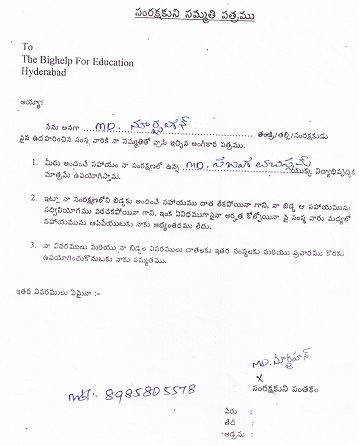 సంరక్షకుని సమ్మతి పత్రము
To
The Bighelp For Education
Hyderabad
అయ్యా!
నేను అనగా MD. తండ్రి/తల్లి/సంరక్షకుడు
పైన ఉదహరించిన సంస్థ వారికి నా సమ్మతితో వ్రాసి ఇచ్చిన అంగీకార పత్రము.
1. మీరు అందించే సహాయం నా సంరక్షణలో ఉన్న MD. యొక్క విద్యాభివృద్ధికి
మాత్రమే ఉపయోగిస్తాము.
2. ఇట్లా నా సంరక్షణలోని బిడ్డకు అందించే సహాయము దాత తీకపోయినా గాని, నా బిడ్డ ఆ సహాయమును
సద్వినియోగము పరచకపోయినా గాని, ఇంక ఏవిధముగానైనా అర్హత కోల్పోయినా పై సంస్థ వారు మధ్యలో
సహాయమును ఆపివేయుటకు నాకు అభ్యంతరము లేదు.
3. నా వివరములు మరియు నా బిడ్డల వివరములు దాతలకు ఇతర సంస్థలకు మరియు ప్రచారము కొరకు
ఉపయోగించుకొనుటకు నాకు సమ్మతము.
ఇతర వివరములు ఏమైనా :-
MD.
X
సంరక్షకుని సంతకం
8985805578
పేరు :
తేది :
అడ్రసు :